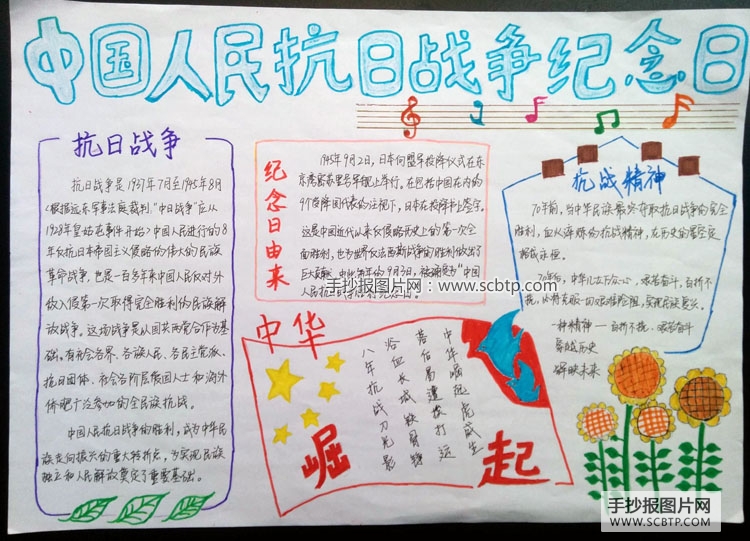 中国人民抗日战争纪念日
抗日战争
抗日战争是1937年7月至1945年8月
(根据远东军事法庭裁判，"中日战争"应从
1928年皇姑屯事件开始)中国人民进行的8
年反抗日本帝国主义侵略的伟大的民族
革命战争，也是一百多年来中国人民反对外
敌入侵第一次取得完全胜利的民族解
放战争。这场战争是以国共两党合作为基
础，有社会各界、各族人民、各民主党派、
抗日团体、社会各阶层爱国人士和海外
侨胞广泛参加的全民族抗战。
中国人民抗日战争的胜利，成为中华民
族走向振兴的重大转折点，为实现民族
独立和人民解放奠定了重要基础。
纪念日由来
1945年9月2日，日本向盟军投降仪式在东
京湾密苏里号军舰上举行。在包括中国在内的
9个受降国代表的注视下，日本在投降书上签字。
这是中国近代以来反侵略历史上的第一次全
面胜利，也为世界反法西斯战争的胜利做出了
巨大贡献。
每年的9月3日，
"中国
人民抗
手抄报图片网：www.scbtp.com
抗战精神
70年前，当中华民族最终夺取抗日战争的完全
胜利，血火淬炼的抗战精神，在历史的星空是
永恒。
70年后，中华儿女万众一心，艰苦奋斗，自折不
挠，以
艰难险阻，实现民族复兴。
一种精神——自折不挠、艰苦奋斗
穿越历史
辉映未来
中华
崛起
中华崛起虎威生
落后易遭
打
浴血长城
八年抗战刀光影
手抄报图片网
WWW.SCBTP.COM